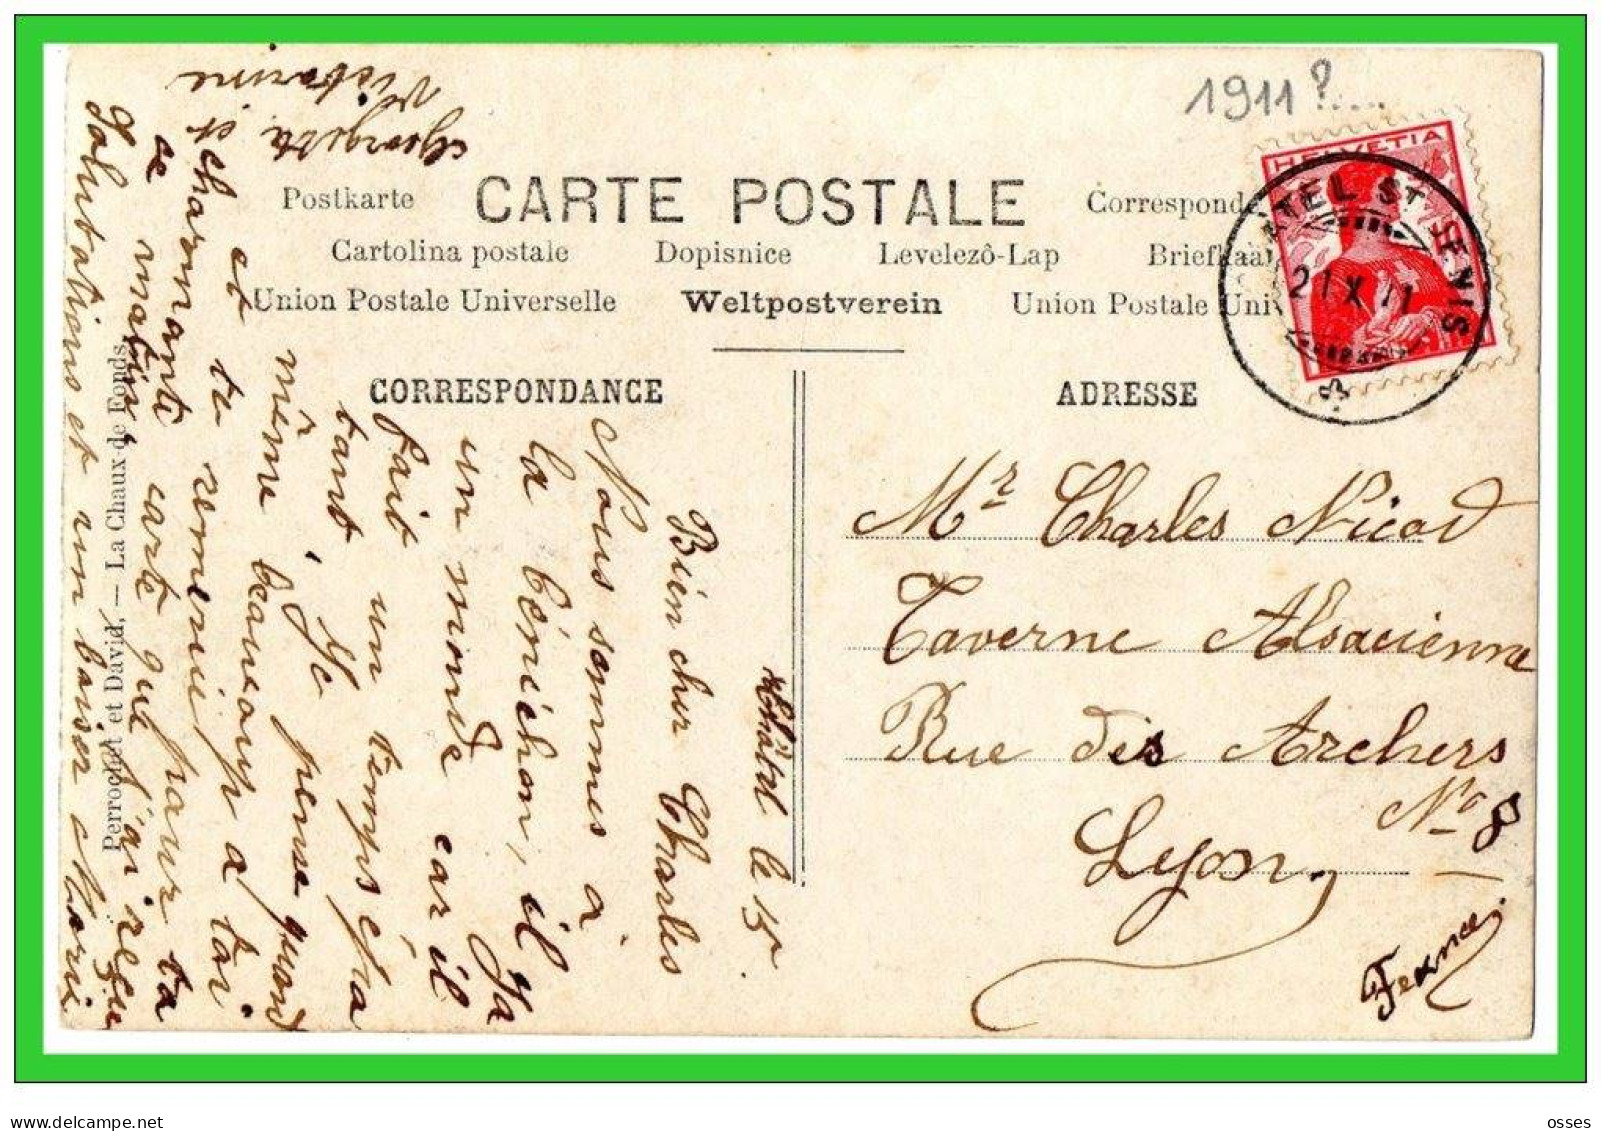 1911?....
HELVETIA
CHATEL ST DENIS
21 X 11
Postkarte CARTE POSTALE Correspond
Cartolina postale Dopisnice Levelezô-Lap Briefkaa
Union Postale Universelle Weltpostverein Union Postale Uni
CORRESPONDANCE
ADRESSE
Mr Charles Nicod
Taverne Alsacienne
Rue des Archers
No 8
Lyon,
France.
Châtel le 15.
Bien cher Charles
Nous sommes à
la bénichon, il ya
un monde car il
fait un temps épa
tant. Je pense quand
même beaucoup a toi
et te remercie pour ta
charmante carte que j'ai reçu
ce matin,
Salutations et un baiser
Georgette et
Victorine
Perrochet et David, — La Chaux-de-Fonds.
delcampe.net
osses